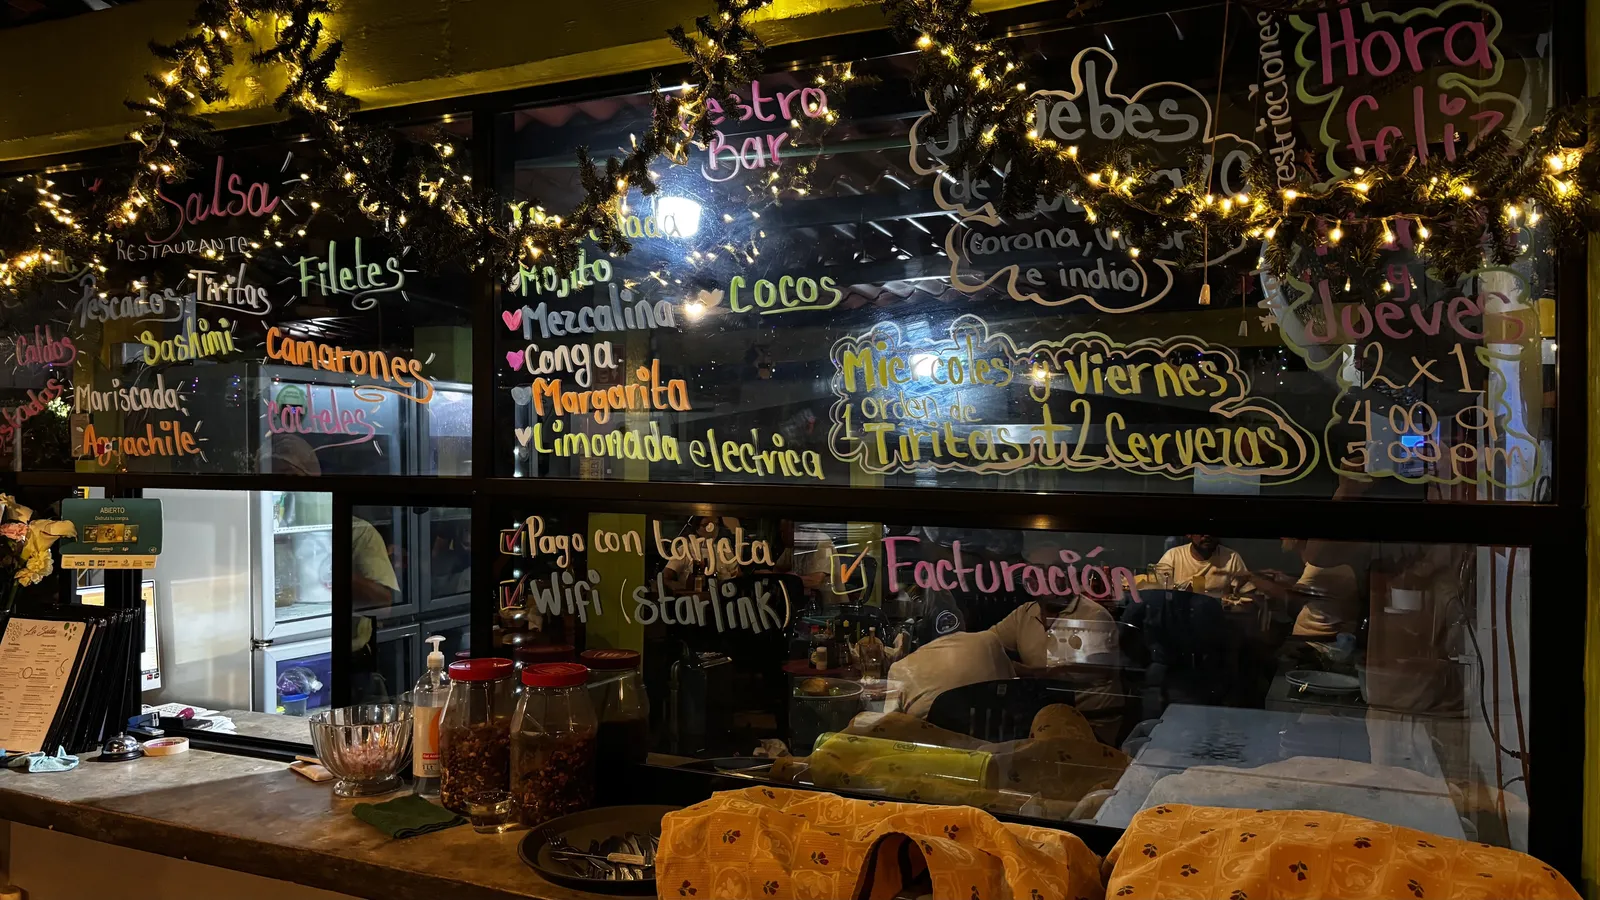 Salsa
RESTAURANTE
Pescados
Tiritas
Filetes
Caldos
Sashimi
Camarones
Mariscada
Aguachile
cocteles
Bar
Mojito
Mezcalina
Conga
Margarita
Limonada electrica
cocos
de
(corona,
e indio)
Miercoles y Viernes
1 orden de
Tiritas + 2 Cervezas
restricciones
Hora
feliz
y
Jueves
2x1
4:00 a
5:00 pm
Pago con tarjeta
Wifi (starlink)
Facturación
ABIERTO
VISA